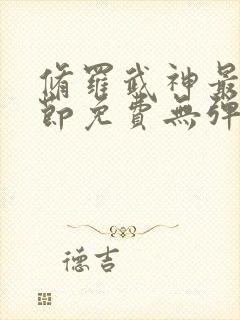 脩羅武神最
節免費無彈
德吉